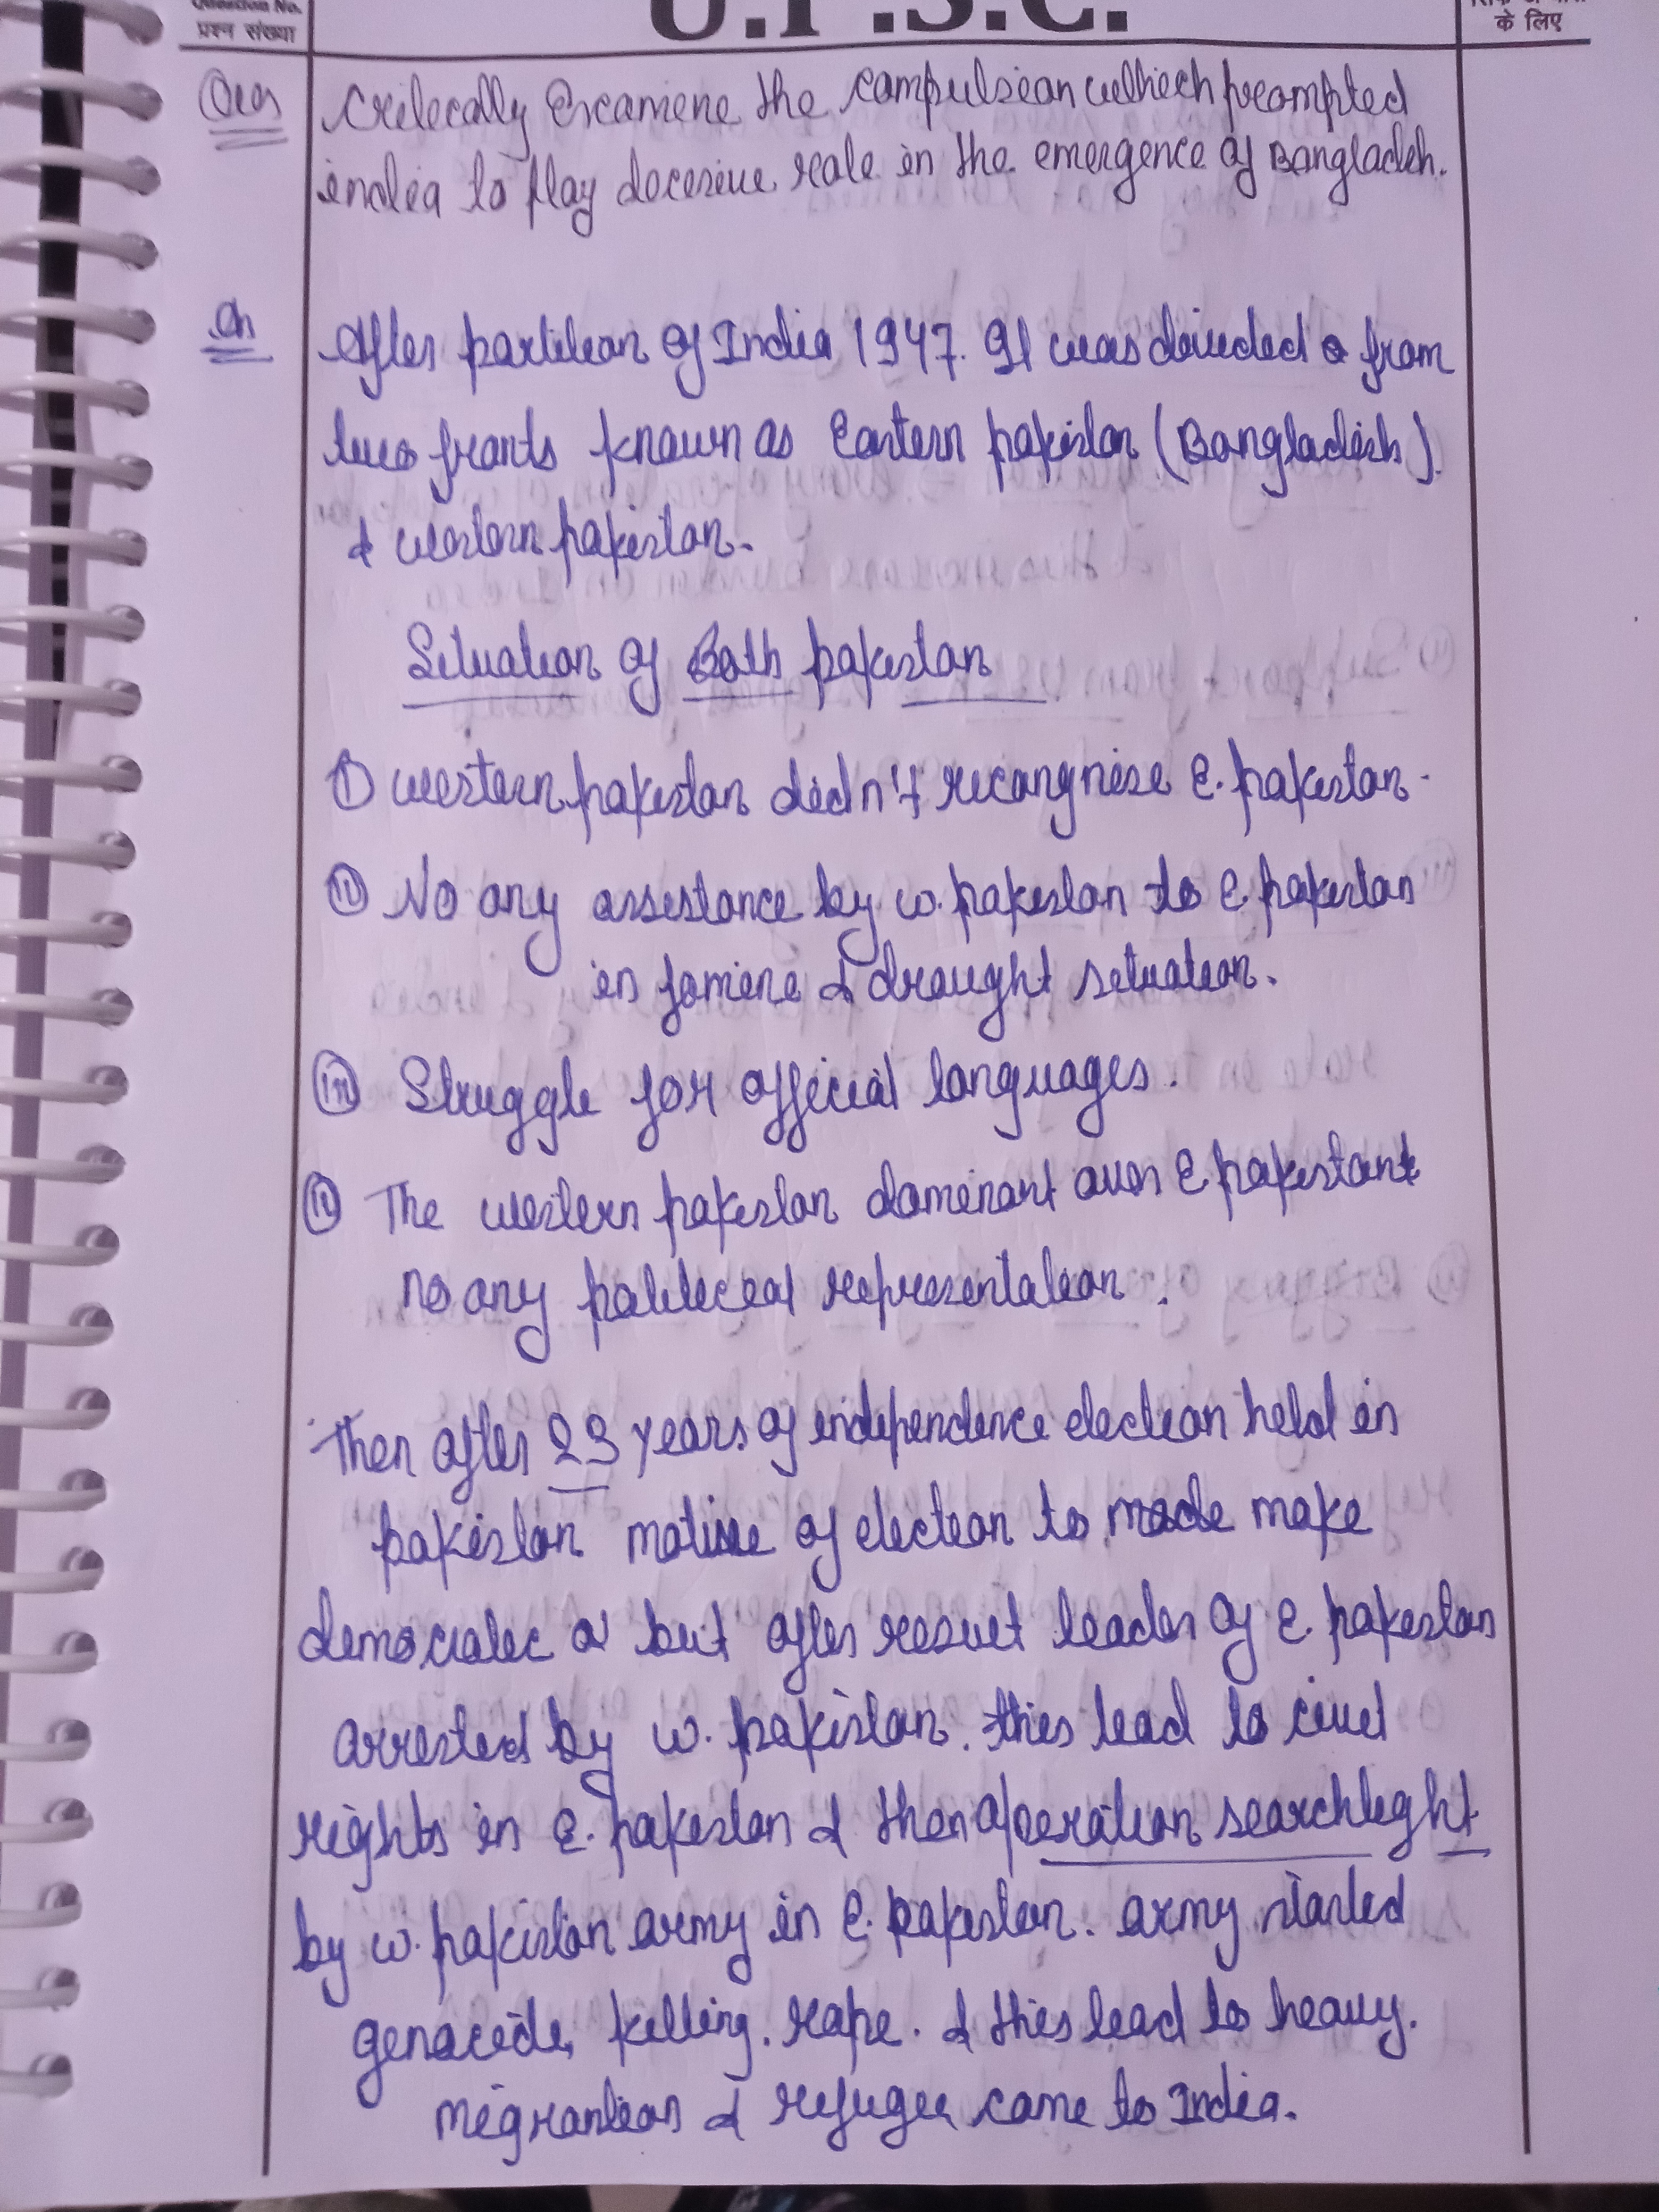 Question No.
प्रश्न संख्या
U.P.S.C.
के लिए
Ques Critically Examine the compulsion which prompted
india to play decesive role in the emergence of Bangladeh.
An After partition of India 1947. It was divided from
two fronts known as Eastern pakistan (Bangladish)
& western pakistan.
Situation of Both pakistan
(i) western pakistan didn't recongnise E. pakistan.
(ii) No any assistance by w. pakistan to E. pakistan
in famine & draught situation.
(iii) Struggle for official languages.
(iv) The western pakistan dominant over E pakistan &
no any political representation.
Then after 23 years of independence election held in
pakistan motive of election to made make
democratic but after result leader of E. pakistan
arrested by w. pakistan. this lead to civil
rights in E. pakistan & then operation searchlight
by w. pakistan army in E. pakistan. army started
genocide, killing. rape. & this lead to heavy.
migrantion & refugee came to India.